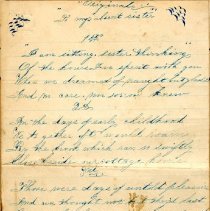 "Original"
"To my absent sister"
1st
"I am sitting, sister, thinking
Of the hours I've spent with you
When we dreamed of naught but
And no care, nor sorrow knew
2nd
In the days of early childhood
We together would roam
By the brook which ran so swiftly
Close beside our cottage home
3rd
Those were days of untold pleasure
And we thought not they'd last